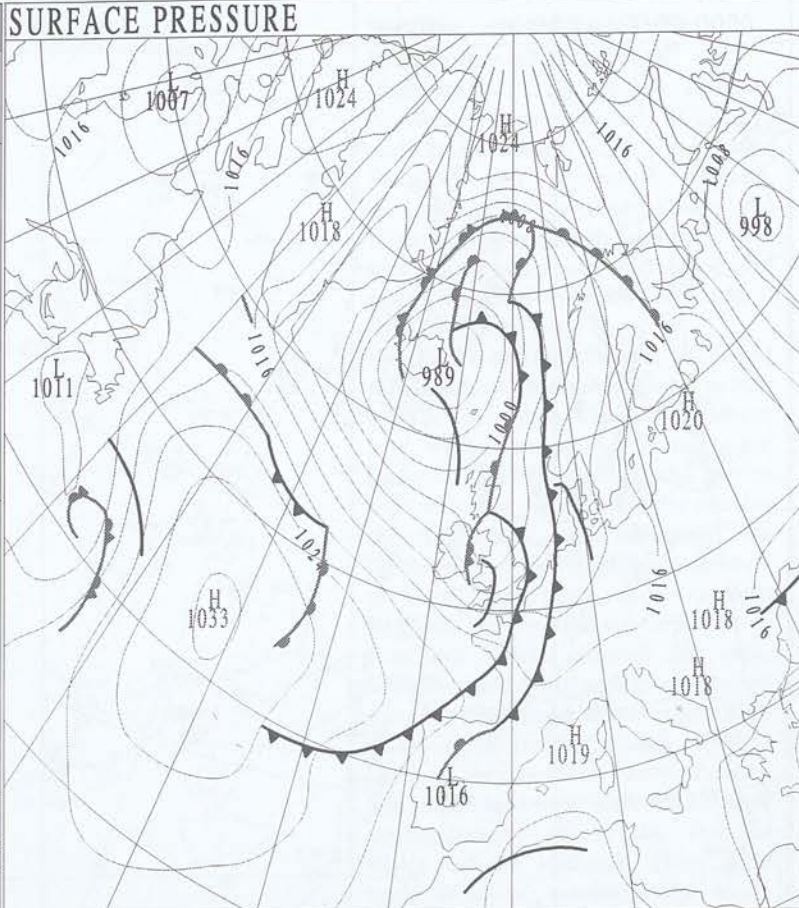 SURFACE PRESSURE
L
1007
H
1024
H
1024
1016
1016
1016
1008
L
998
H
1018
1008
1016
1016
L
1011
L
989
H
1020
1000
1024
H
1033
1016
H
1018
1016
H
1018
H
1019
L
1016